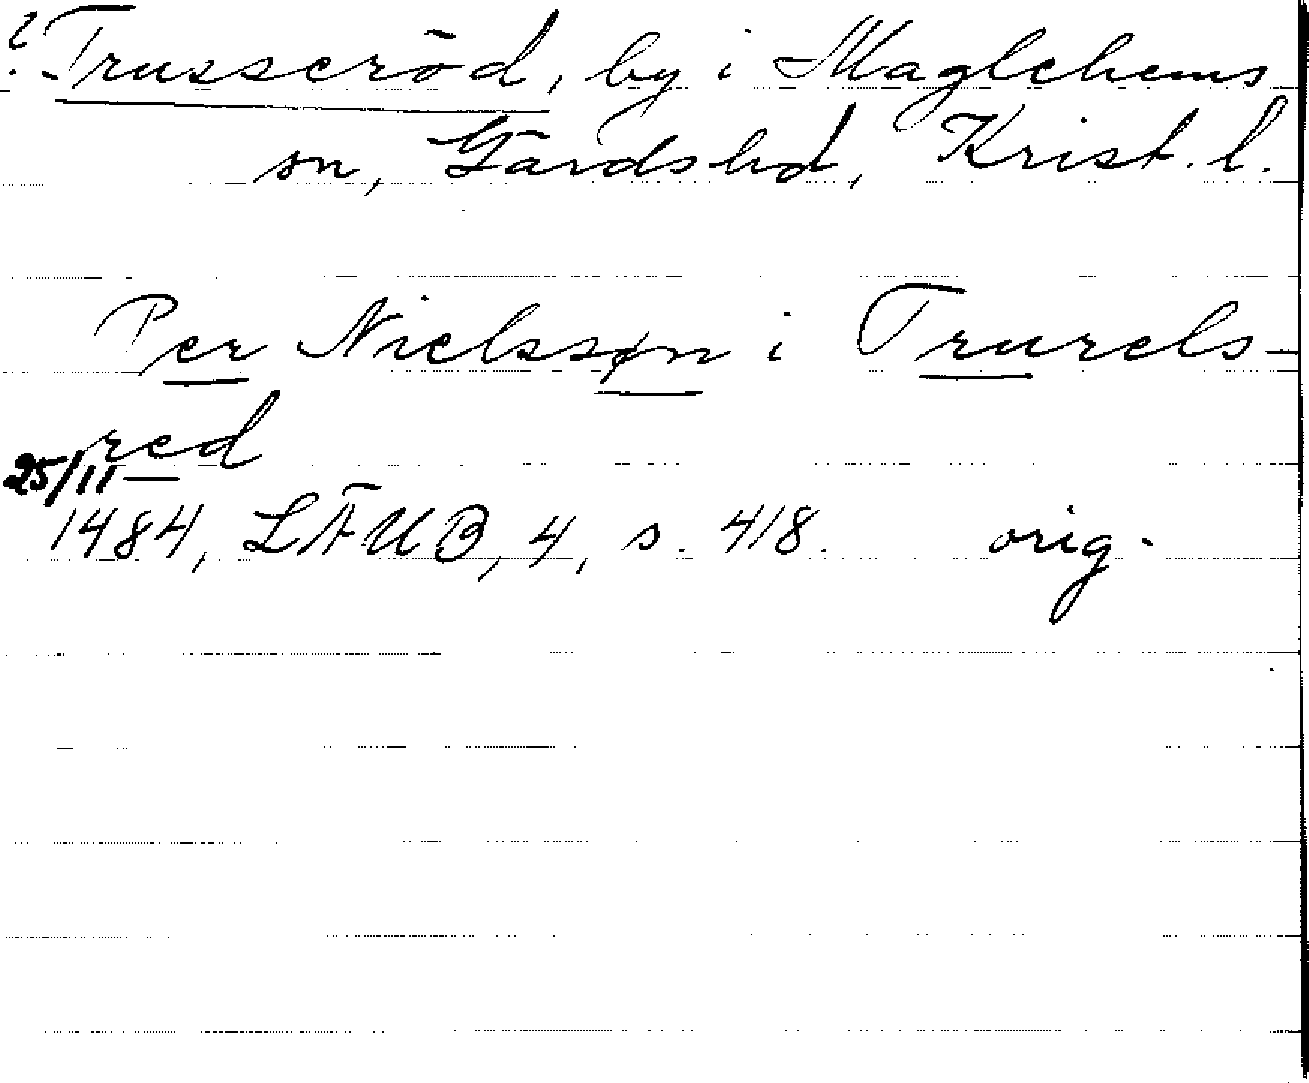 ? Trusseröd, by i Maglehems
sn, Gärds hd, Krist. l.
Per Nielssøn i Trurels-
red
25/11
1484, LÄUB, 4, s. 418. orig.